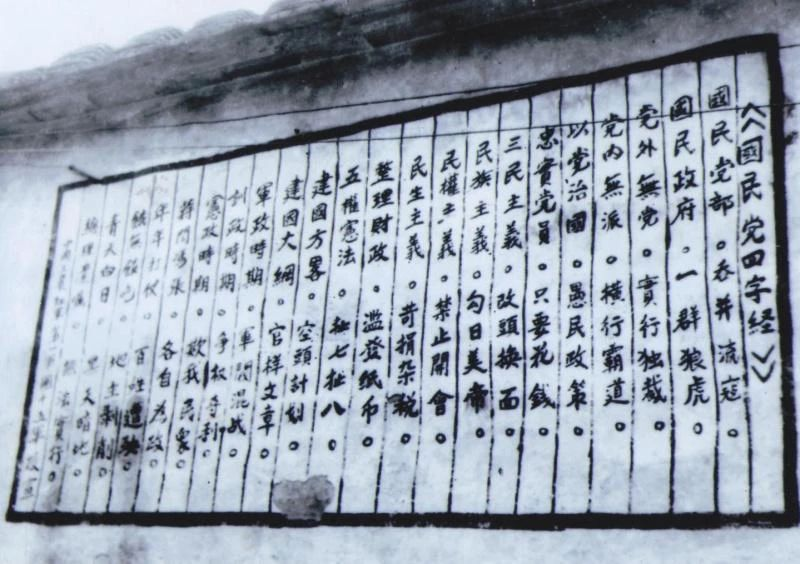 《國民党四字経》
國民党部。吞并流寇。
國民政府。一群狼虎。
党外無党。實行独裁。
党内無派。橫行霸道。
以党治國。愚民政策。
忠實党員。只要花錢。
三民主義。改頭換面。
民族主義。勾日美帝。
民權主義。禁止開會。
民生主義。苛捐杂税。
整理財政。濫發纸币。
五權憲法。扯七扯八。
建國方畧。空頭計划。
建國大綱。官样文章。
軍政時期。軍閥混战。
訓政時期。争权夺利。
憲政時期。欺我民衆。
蒋閻馮張。各自為政。
年年打仗。百姓遭殃。
地主剥削。
青天白日。黑天暗地。
總理遺囑。實行。